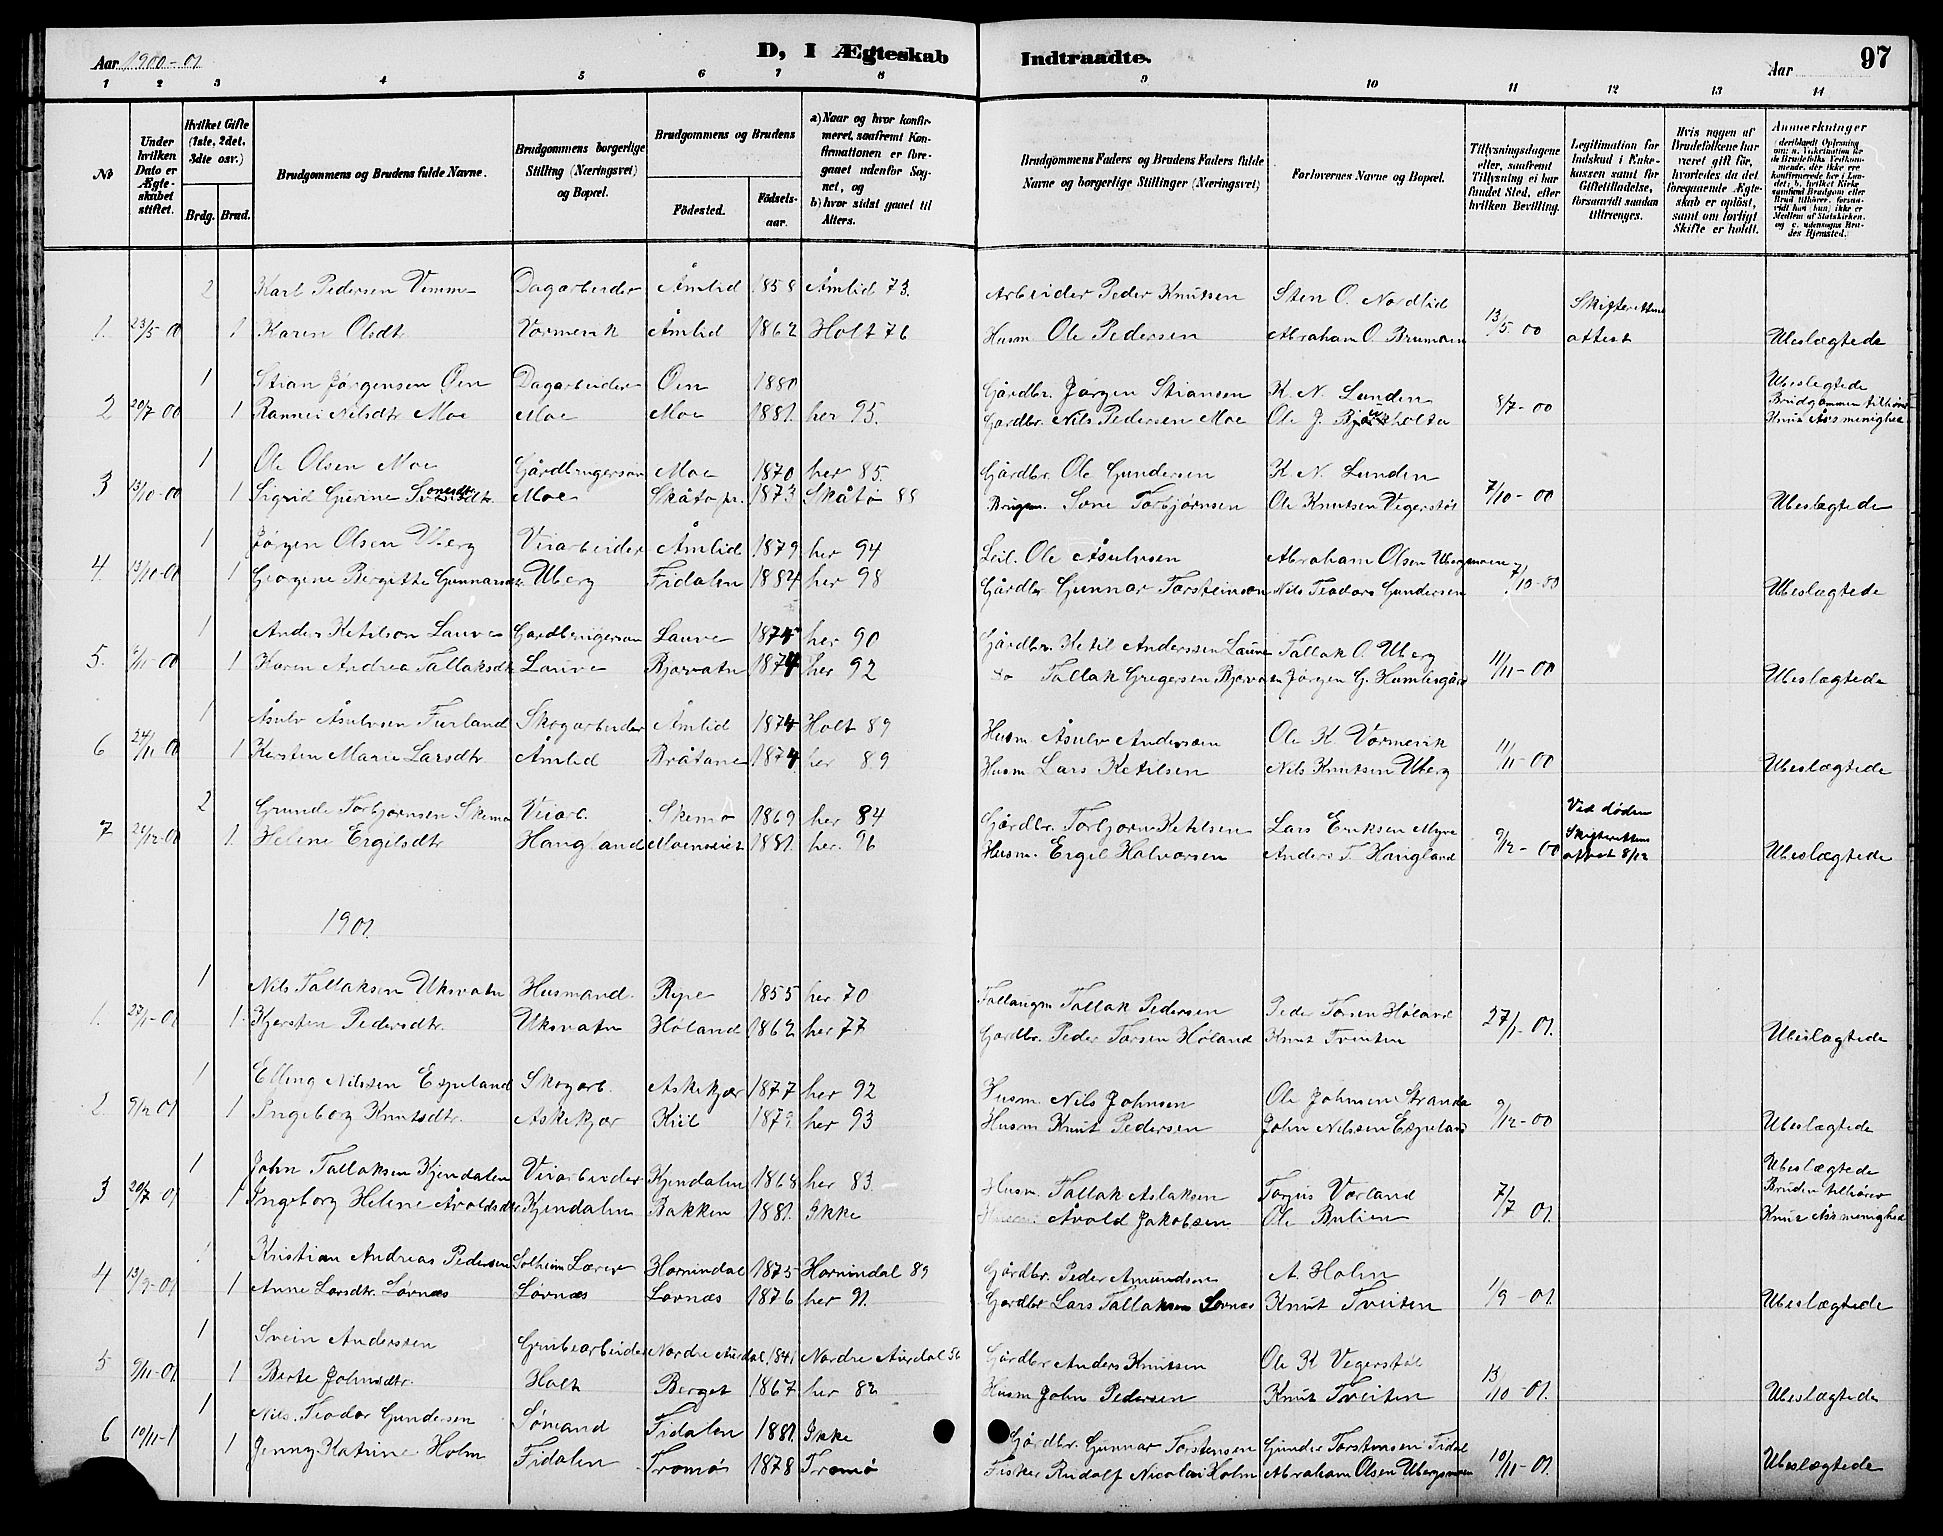 Aar 1900-01
D, I Ægteskab Indtraadte.
Aar
97
1 2 3 4 5 6 7 8 9 10 11 12 13 14
No
Under hvilken Dato er Ægteskabet stiftet.
Hvilket Gifte (1ste, 2det, 3dte osv.)
Brdg. Brud.
Brudgommens og Brudens fulde Navne.
Brudgommens borgerlige Stilling (Næringsvei) og Bopæl.
Brudgommens og Brudens
Fødested.
Fødselsaar.
a) Naar og hvor konfirmeret, saafremt Konfirmationen er foregaaet udenfor Sognet, og
b) hvor sidst gaaet til Alters.
Brudgommens Faders og Brudens Faders fulde Navne og borgerlige Stillinger (Næringsvei)
Forlovernes Navne og Bopæl.
Tillysningsdagene eller, saafremt Tillysning ei har fundet Sted, efter hvilken Bevilling.
Legitimation for Indskud i Enkekassen samt for Giftetilladelse, forsaavidt saadan tiltrænges.
Hvis nogen af Brudefolkene har været gift før, hvorledes da det foregaaende Ægteskab er opløst, samt om lovligt Skifte er holdt.
Anmerkninger
2 Karl Pedersen Vimme Dagarbeider Åmlid 1858 Åmlid 73. Arbeider Peder Knutsen Sten O. Nordlid Skifterettens
1. 23/5 00 1 Karen Olsdtr. Vormevik Åmlid 1862 Holt 76 Husm. Ole Pedersen Abraham O. Brumoen 13/5-00 attest Ubeslægtede
1 Stian Jørgensen Øen Dagarbeider Øen 1880 Gårdbr. Jørgen Stiansen K. N. Lunden Ubeslegtede
2 20/7 00 1 Rannei Nilsdtr. Moe Moe Moe 1881. her 95. Gardbr. Nils Pedersen Moe Ole J. 8/7-00 Brudgommen tilhører Knut Ås's menighed
1 Ole Olsen Moe Gårdbrugerson Moe 1870 her 85. Gårdbr. Ole Gundersen K. N. Lunden
3 13/10-00 1 Sigrid Gurine Sonesdtr. Moe Skåtø pr. 1873 Skåtø 88 Brugm. Sone Torbjørnsen Ole Knutsen Vegerstøl 7/10-00 Ubeslægtede
1 Jørgen Olsen Uberg Veiarbeider Åmlid 1879 her 94 Leil. Ole Åsulvsen Abraham Olsen Ubergsmoen
4. 13/10-00 1 Georgene Bergitte Gunnarsdtr Uberg Fidalen 1884 her 98 Gårdbr. Gunnar Torsteinsen Nils Teodors Gundersen 7/10-00 Ubeslægtede
1 Anders Ketilson Lauve Gardbrugerson Lauve 1874 her 90 Gårdbr. Ketil Anderssen Lauve Tallak O. Uberg
5. 00 1 Karen Andrea Tallaksdtr Lauve Bjorvatn 1874 her 92 do Tallak Gregersen Bjorvatn Jørgen G. Humlegård 11/11-00 Ubeslægtede
1 Åsulv Åsulvsen Furland Skogarbeider Åmlid 1874 Holt 89 Husm Åsulv Andersen Ole K Vormevik
6 24/11 00 1 Kersten Marie Larsdtr Åmlid Bråtane 1874 her 89 Husm Lars Ketilsen Nils Knutsen Uberg 11/11-00 Ubeslægtede
2 Grunde Torbjørnsen Skemo Veiarb. Skemo 1869 her 84 Gårdbr. Torbjørn Ketilsen Lars Eriksen Myre Ved døden
7 26/12-00 1. Helene Ergilsdtr Haugland 1881. her. 96 Husm. Ergil Halvorsen Anders T. Haugland 9/12-00 Skifterettens attest 8/12 Ubeslægtede
1901.
1 Nils Tallaksen Uksvatn Husmand. Ripe 1855 her 70 Tallak Pedersen Peder Torsen Høland
1. 27/1-01 1. Kjersten Pedersdtr. Uksvatn Høland 1862 her 77 Gardbr. Peder Torsen Høland Knut Tveiten 27/1-01. Ubeslægtede
1 Elling Nilssen Espeland Skogarb. Askekjær 1877 her 92 Husm. Nils Johnsen Ole Johnsen Stranda
2 9/12 01 1 Ingeborg Knutsdtr. Askekjær Kiil 1879 her 93 Husm Knut Pedersen John Nilssen Espeland 9/12-00 Ubeslægtede
1 John Tallaksen Kjendalen Veiarbeider Kjendalen 1868 her 83. Husm. Tallak Aslaksen Torjus Vorland Ubeslægtede
3 20/7 01 1 Ingeborg Helene Åvoldsdtr Kjendalen Bakken 1881. Ikke Åvold Jakobsen Ole Bulien 7/7 01. Bruden tilhører Knut Ås's menighed
1 Kristian Andreas Pedersen Solheim Lærer Hornindal 1875 Hornindal 89 Gårdbr. Peder Amundsen A. Holm
4 13/9-01 1 Anne Larsdtr. Løvnæs Løvnæs Løvnæs 1876 her 91. Gardbr Lars Tallaksen Løvnæs Knut Tveiten 1/9-01. Ubeslægtede
1 Svein Anderssen Grubearbeider Nordre Aurdal 1841 Nordre Aurdal 56 Gårdbr Anders Knutsen Ole K Vegerstøl
5 9/11-01 1 Berte Johnsdtr. Holt Berget 1867 her 82 Husm John Pedersen Knut Tveiten 13/10-01. Ubeslægtede
1 Nils. Teodor Gundersen Sømand Fidalen 1881. Ikke Gårdbr. Gunnar Torstensen Gunder Torstensen Fidal
6 10/11-1 1 Jenny Katrine Holm Fidalen Tromø 1878 Tromø Fisker Rudolf Nicolai Holm Abraham Olsen Ubergsmoen 10/11-01. Ubeslægtede